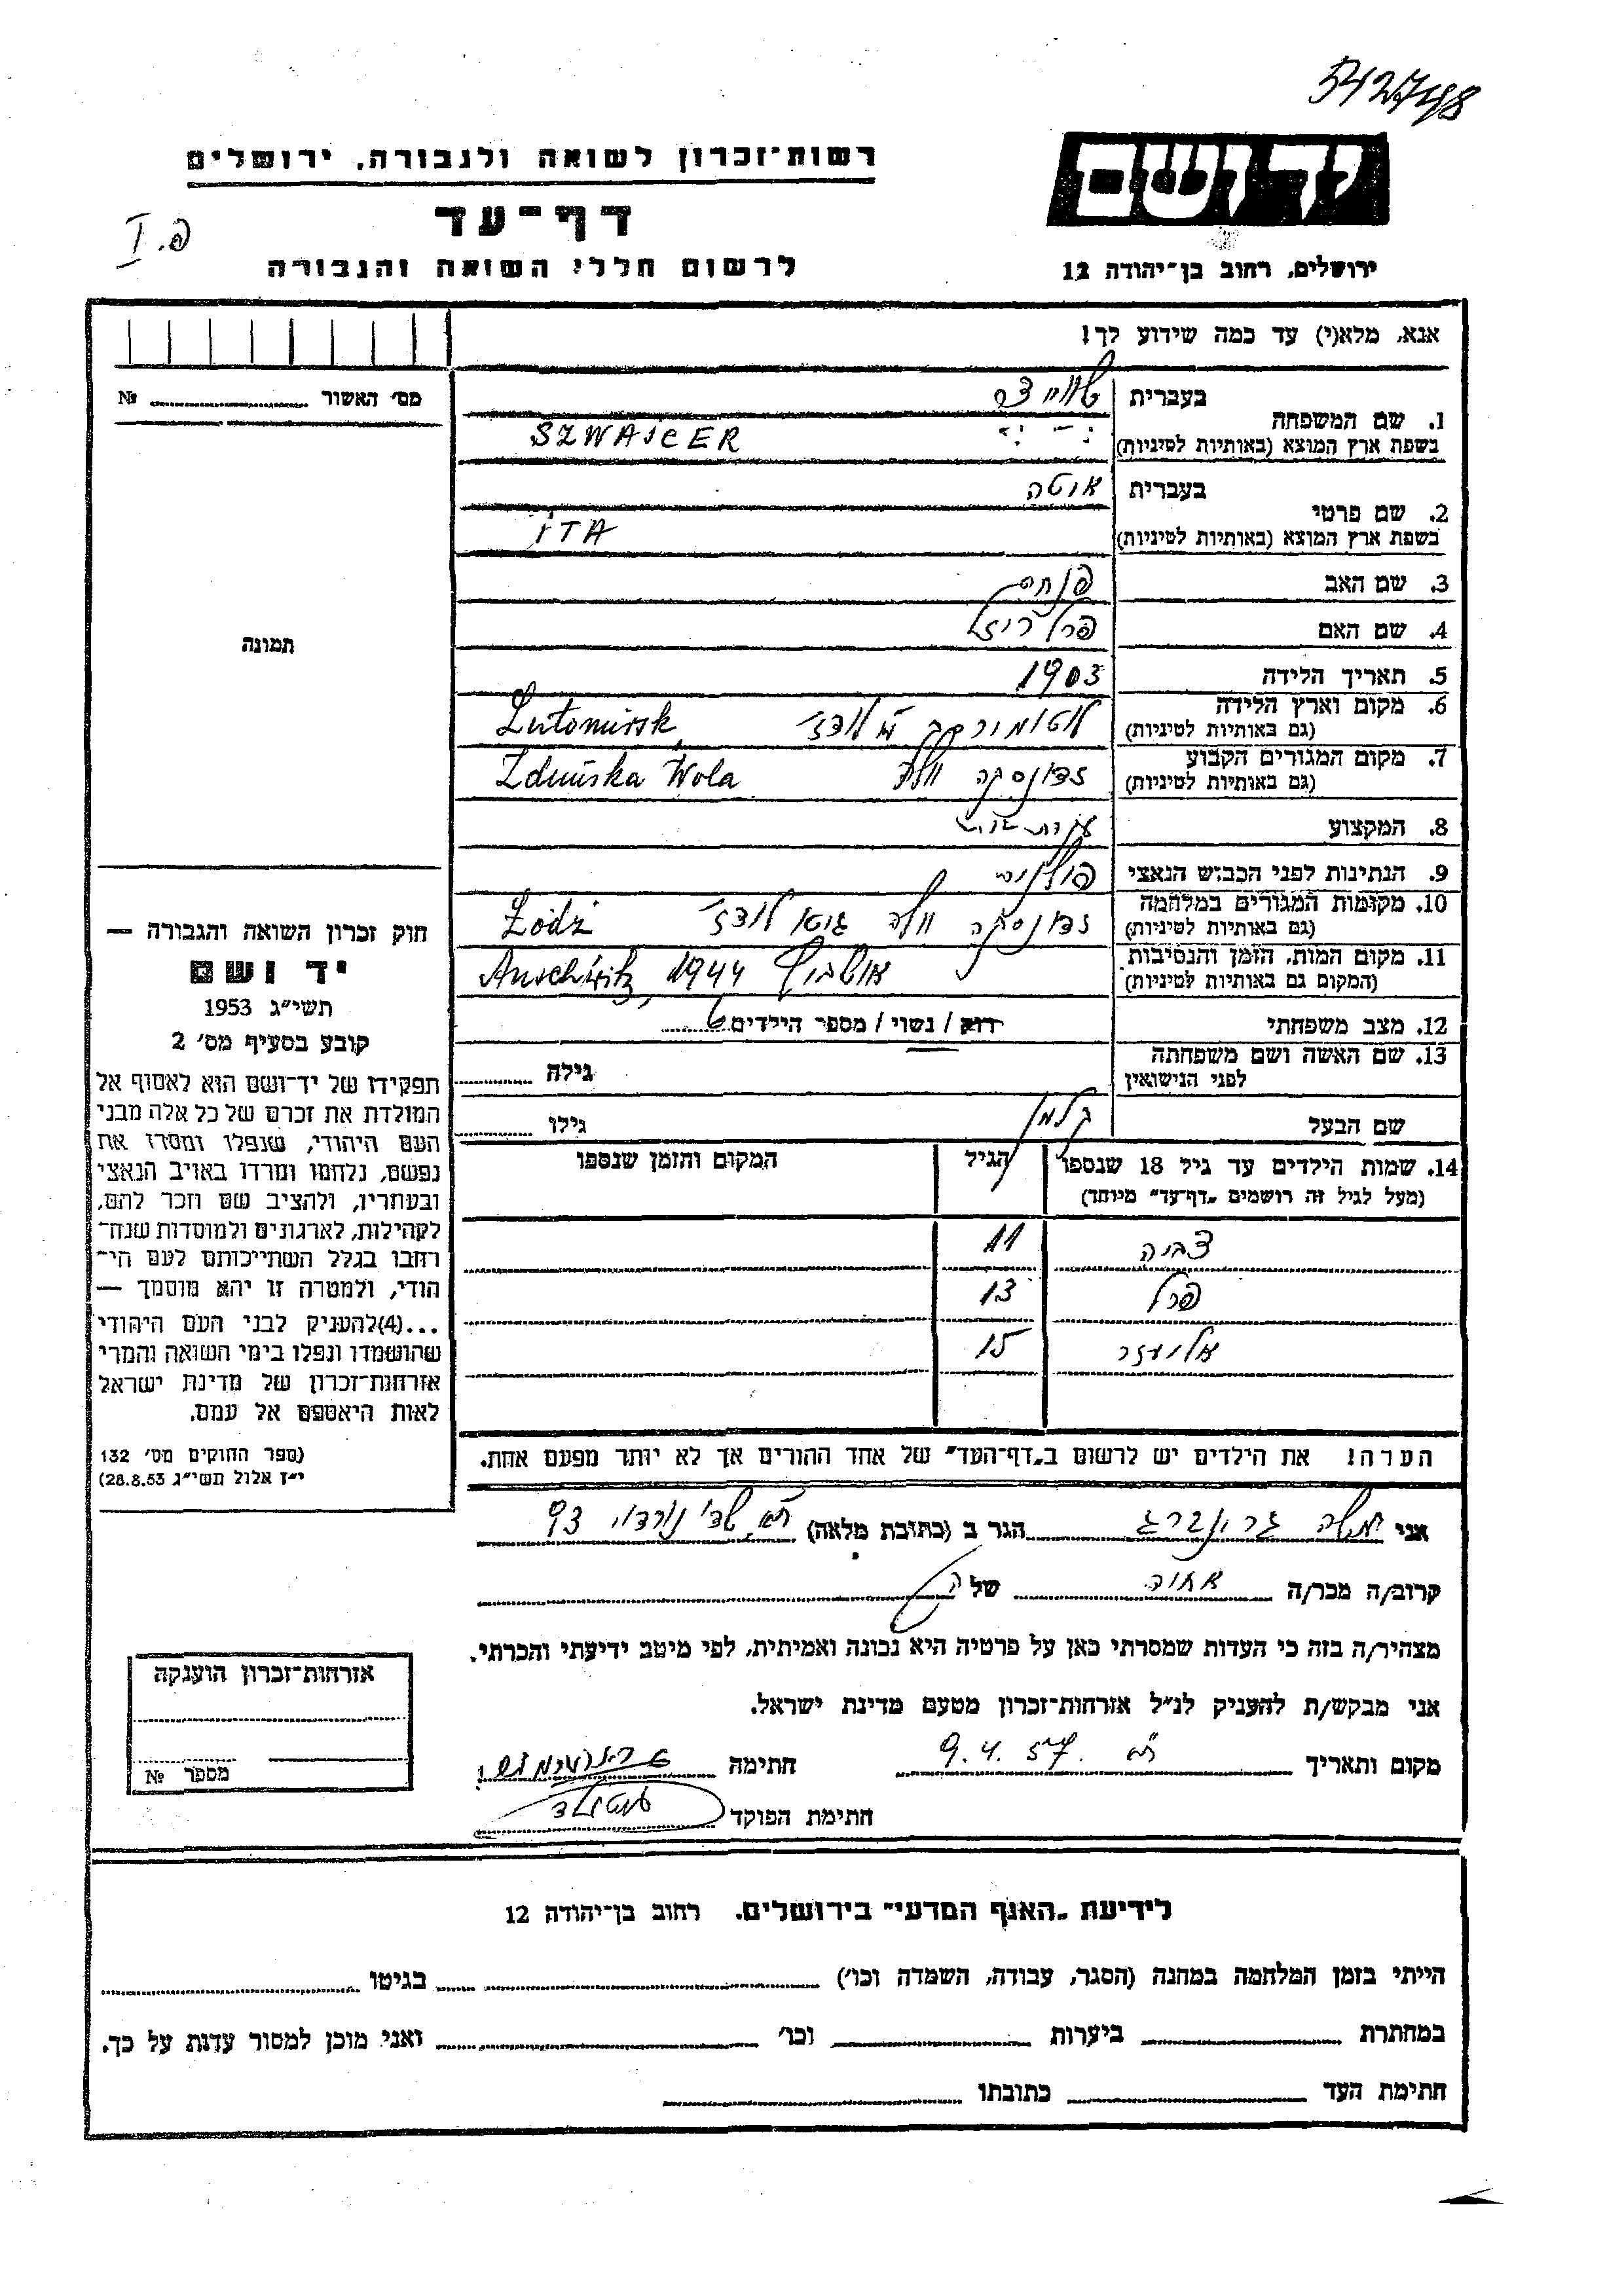 542748
יד ושם
רשות־זכרון לשואה ולגבורה, ירושלים
דף־עד
פ. I
לרשום חללי השואה והגבורה
ירושלים, רחוב בן־יהודה 12
אנא, מלא(י) עד כמה שידוע לך!
מס׳ האשור № 
1. שם המשפחה בעברית שווייצר
בשפת ארץ המוצא (באותיות לטיניות) SZWAJCER
2. שם פרטי בעברית איטה
בשפת ארץ המוצא (באותיות לטיניות) ITA
3. שם האב פנחס
4. שם האם פרל רייזל
תמונה
5. תאריך הלידה 1903
6. מקום וארץ הלידה
(גם באותיות לטיניות) לוטומירסק לודז׳ Lutomirsk
7. מקום המגורים הקבוע
(גם באותיות לטיניות) זדונסקה וולה Zduńska Wola
8. המקצוע עקרת בית
9. הנתינות לפני הכבוש הנאצי פולנית
10. מקומות המגורים במלחמה
(גם באותיות לטיניות) זדונסקה וולה גיטו לודז׳ Łódź
11. מקום המות, הזמן והנסיבות
(המקום גם באותיות לטיניות) אושביץ 1944 Auschwitz
12. מצב משפחתי רוק / נשוי / מספר הילדים 6
13. שם האשה ושם משפחתה
לפני הנישואין גילה
שם הבעל קלמן גילו
14. שמות הילדים עד גיל 18 שנספו הגיל המקום והזמן שנספו
(מעל לגיל זה רושמים „דף־עד״ מיוחד)
צביה 11
פרל 13
אליעזר 15
הערה! את הילדים יש לרשום ב„דף־העד״ של אחד ההורים אך לא יותר מפעם אחת.
חוק זכרון השואה והגבורה —
יד ושם
תשי״ג 1953
קובע בסעיף מס׳ 2
תפקידו של יד־ושם הוא לאסוף אל
המולדת את זכרם של כל אלה מבני
העם היהודי, שנפלו ומסרו את
נפשם, נלחמו ומרדו באויב הנאצי
ובעוזריו, ולהציב שם וזכר להם,
לקהילות, לארגונים ולמוסדות שנח־
רבו בגלל השתייכותם לעם הי־
הודי, ולמטרה זו יהא מוסמך —
...(4)להעניק לבני העם היהודי
שהושמדו ונפלו בימי השואה והמרי
אזרחות־זכרון של מדינת ישראל
לאות היאספם אל עמם.
(ספר החוקים מס׳ 132
י״ז אלול תשי״ג 28.8.53)
אני גרינברג הגר ב (כתובת מלאה) ת״א שד׳ נורדוי 93
קרוב/ה מכר/ה אחות של
מצהיר/ה בזה כי העדות שמסרתי כאן על פרטיה היא נכונה ואמיתית, לפי מיטב ידיעתי והכרתי.
אני מבקש/ת להעניק לנ״ל אזרחות־זכרון מטעם מדינת ישראל.
מקום ותאריך ת״א 9.4.57 חתימה
חתימת הפוקד
אזרחות־זכרון הוענקה
מספר №
לידיעת „האגף המדעי״ בירושלים. רחוב בן־יהודה 12
הייתי בזמן המלחמה במחנה (הסגר, עבודה, השמדה וכו׳) בגיטו
במחתרת ביערות וכו׳ ואני מוכן למסור עדות על כך.
חתימת העד כתובתו